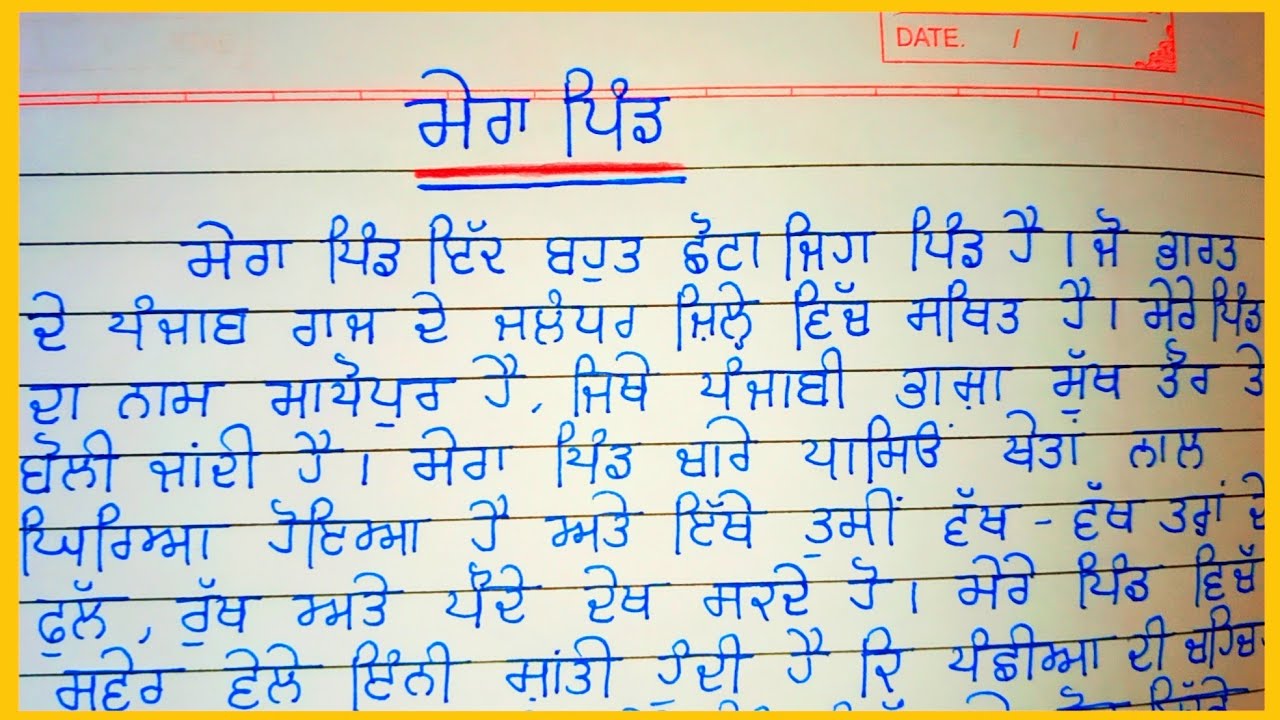 DATE. / /
ਮੇਰਾ ਪਿੰਡ
ਮੇਰਾ ਪਿੰਡ ਇੱਕ ਬਹੁਤ ਛੋਟਾ ਜਿਹਾ ਪਿੰਡ ਹੈ। ਜੋ ਭਾਰਤ
ਦੇ ਪੰਜਾਬ ਰਾਜ ਦੇ ਜਲੰਧਰ ਜ਼ਿਲ੍ਹੇ ਵਿੱਚ ਸਥਿਤ ਹੈ। ਮੇਰੇ ਪਿੰਡ
ਦਾ ਨਾਮ ਮਾਧੋਪੁਰ ਹੈ, ਜਿਥੇ ਪੰਜਾਬੀ ਭਾਸ਼ਾ ਮੁੱਖ ਤੌਰ ਤੇ
ਬੋਲੀ ਜਾਂਦੀ ਹੈ। ਮੇਰਾ ਪਿੰਡ ਚਾਰੇ ਪਾਸਿਓਂ ਖੇਤਾਂ ਨਾਲ
ਘਿਰਿਆ ਹੋਇਆ ਹੈ ਅਤੇ ਇੱਥੇ ਤੁਸੀਂ ਵੱਖ - ਵੱਖ ਤਰ੍ਹਾਂ ਦੇ
ਫੁੱਲ, ਰੁੱਖ ਅਤੇ ਪੌਦੇ ਦੇਖ ਸਕਦੇ ਹੋ। ਮੇਰੇ ਪਿੰਡ ਵਿੱਚ
ਸਵੇਰ ਵੇਲੇ ਇੰਨੀ ਸ਼ਾਂਤੀ ਹੁੰਦੀ ਹੈ ਕਿ ਪੰਛੀਆ ਦੀ ਚਹਿਚ-